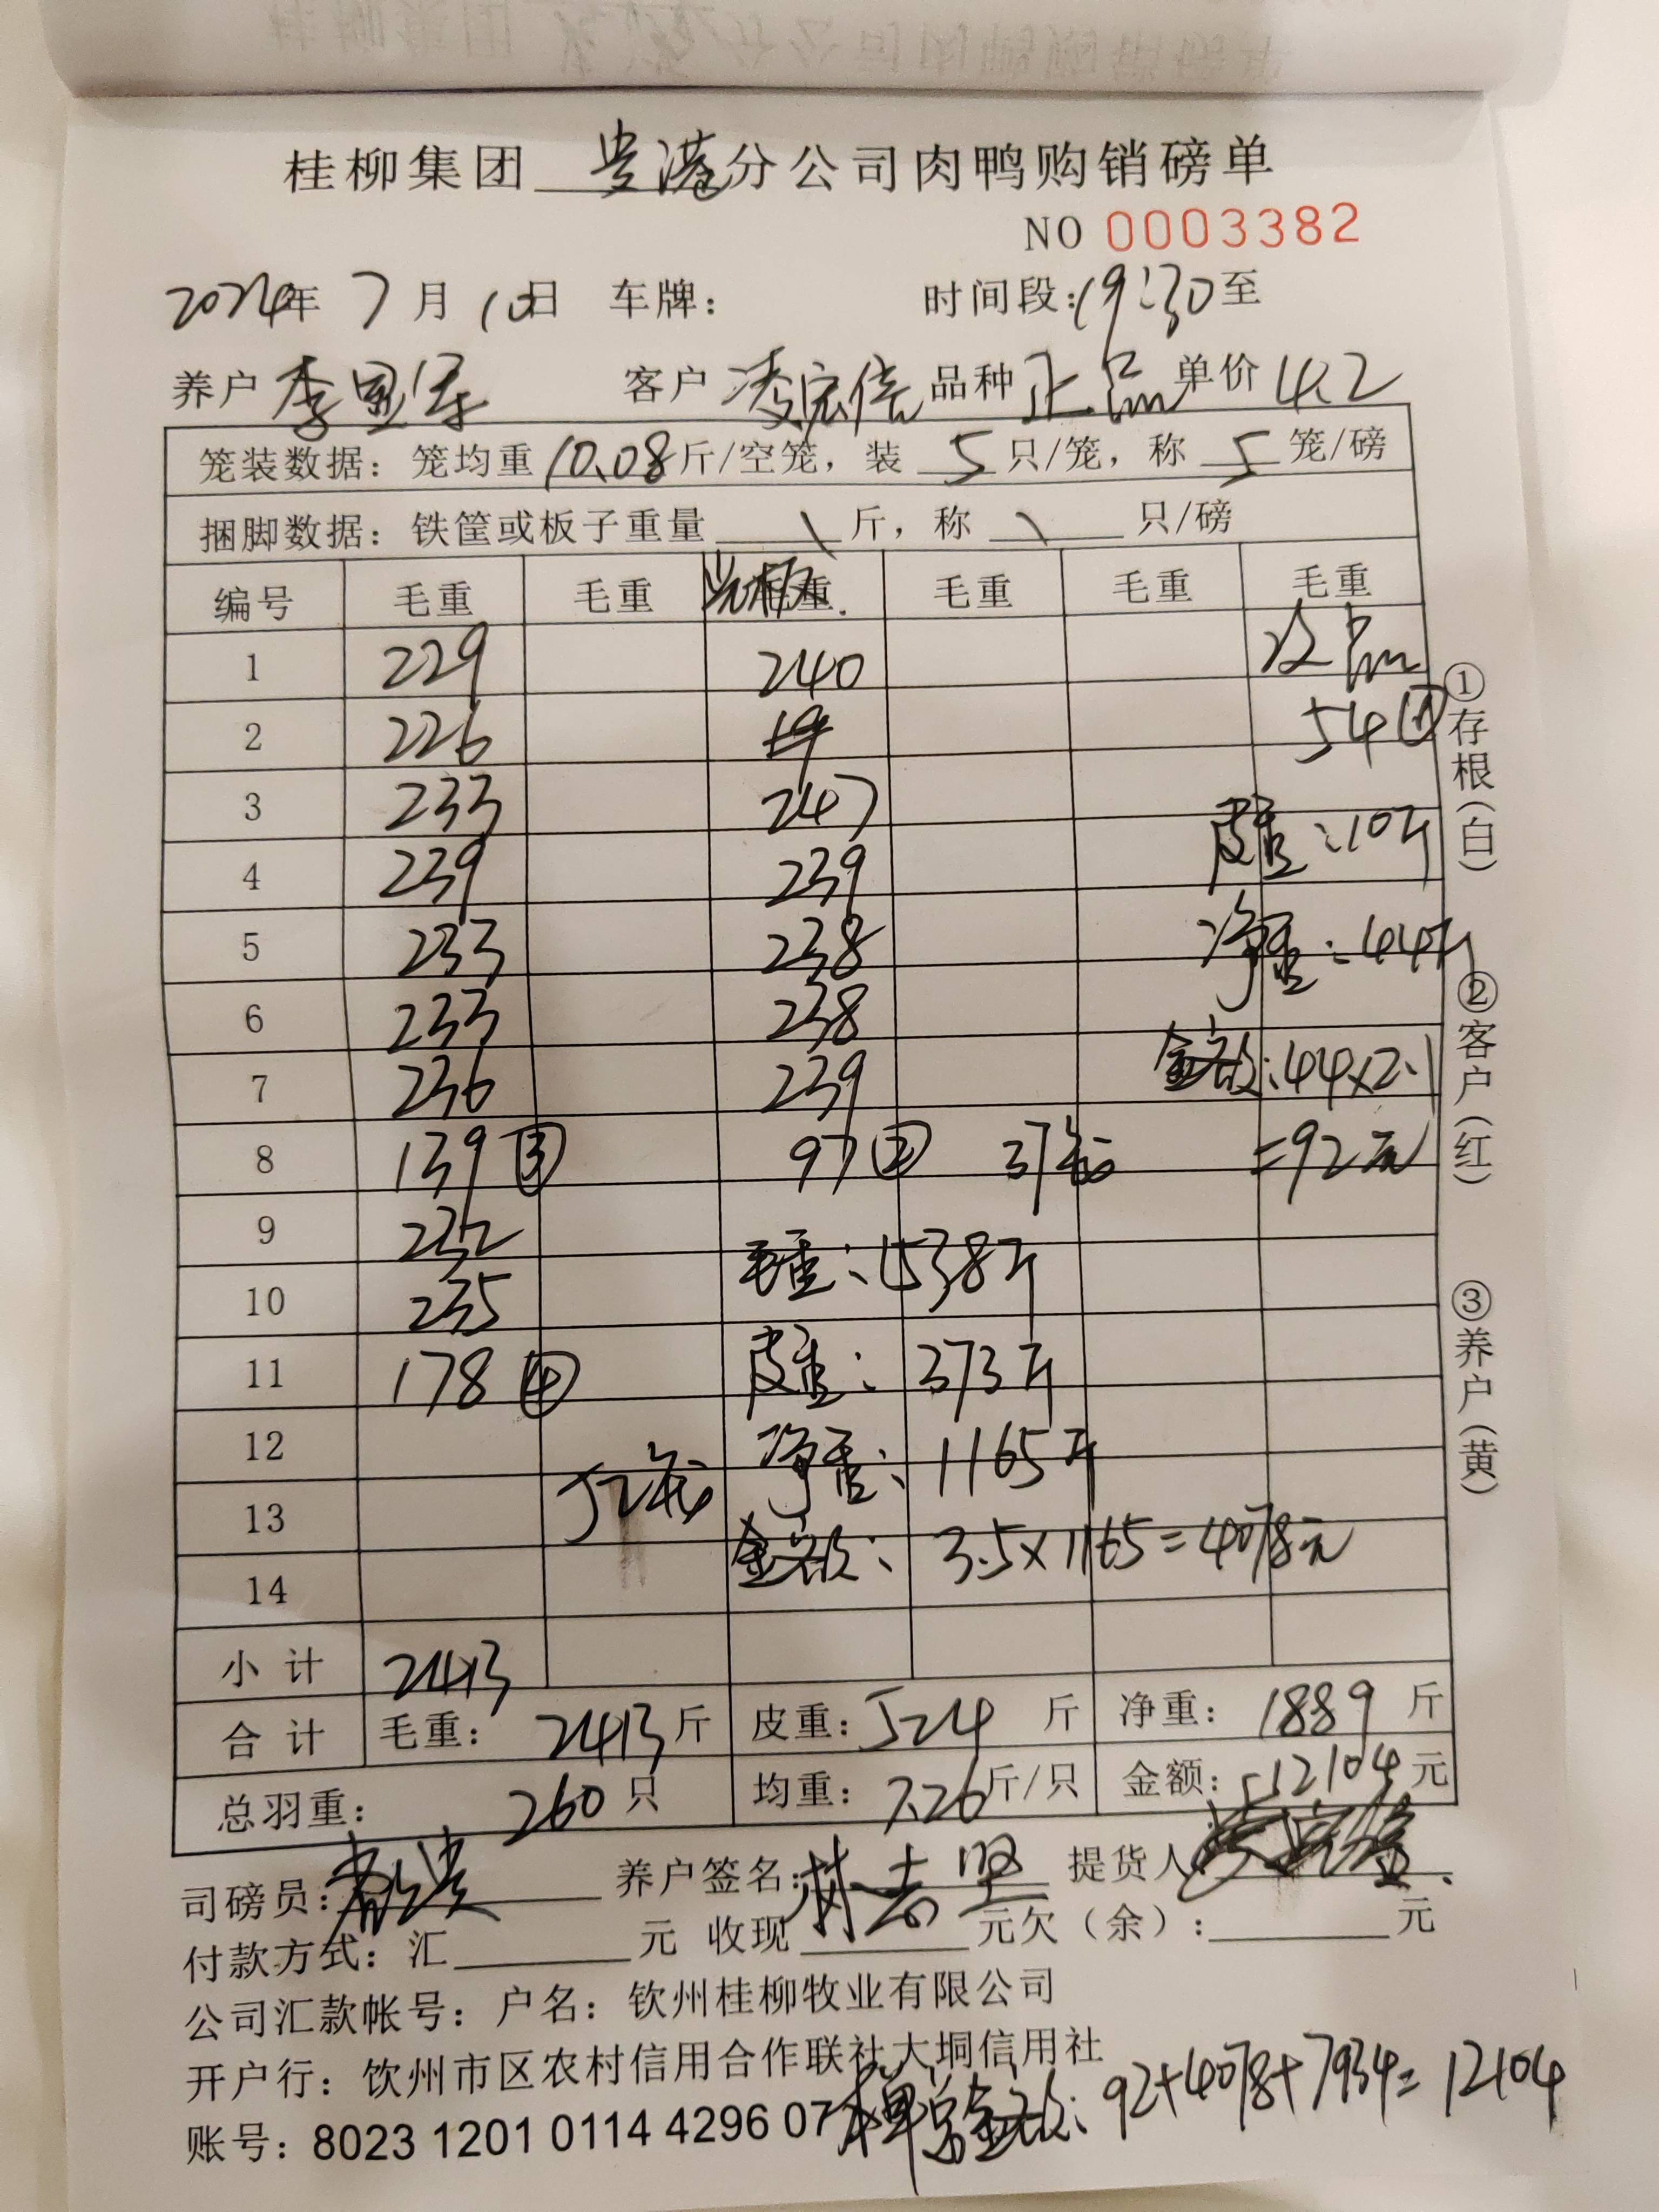 桂柳集团 贵港 分公司肉鸭购销磅单
NO 0003382
2024年 7月 10日 车牌： 时间段：19:30至
养户 李 客户 凌宏信 品种 正品 单价 4.2
笼装数据：笼均重 10.08 斤/空笼，装 5 只/笼，称 5 笼/磅
捆脚数据：铁筐或板子重量 \ 斤，称 \ 只/磅
编号 毛重 毛重 光板 毛重 毛重 毛重 毛重
1 229 240 次品
2 226 54①
3 233 247 皮重：10斤
4 239 239
5 233 238 净重：44斤
6 233 238
7 236 239 金额：44×2.1
8 139③ 97② 37笼 =92元
9 232 毛重：1538斤
10 235
11 178④ 皮重：373斤
12 净重：1165斤
13 52笼
14 金额：3.5×1165=4078元
小计 2413
合计 毛重：2413斤 皮重：524 斤 净重：1889 斤
总羽重：260只 均重：7.26斤/只 金额：12104元
司磅员： 养户签名：林志坚 提货人
付款方式：汇 元 收现 元欠（余）： 元
公司汇款帐号：户名：钦州桂柳牧业有限公司
开户行：钦州市区农村信用合作联社大垌信用社
账号：8023 1201 0114 4296 07 本单总金额：92+4078+7934=12104
①存根（白）
②客户（红）
③养户（黄）